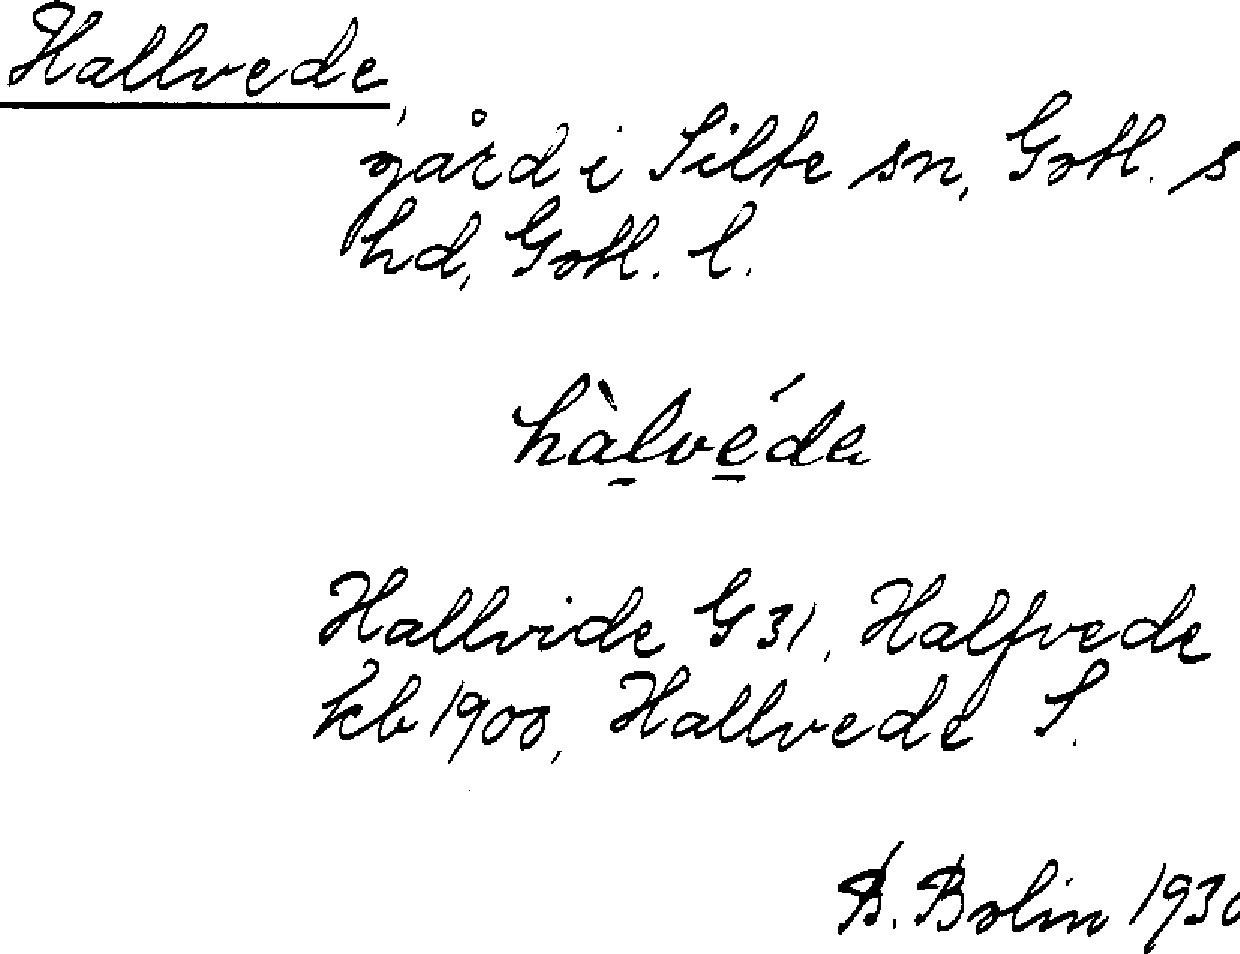 Hallvede,
gård i Silte sn, Gotl. s
hd, Gotl. l.
hàlvéda
Hallvide G 31, Halfvede
kb 1900, Hallvede S.
B. Bolin 1930